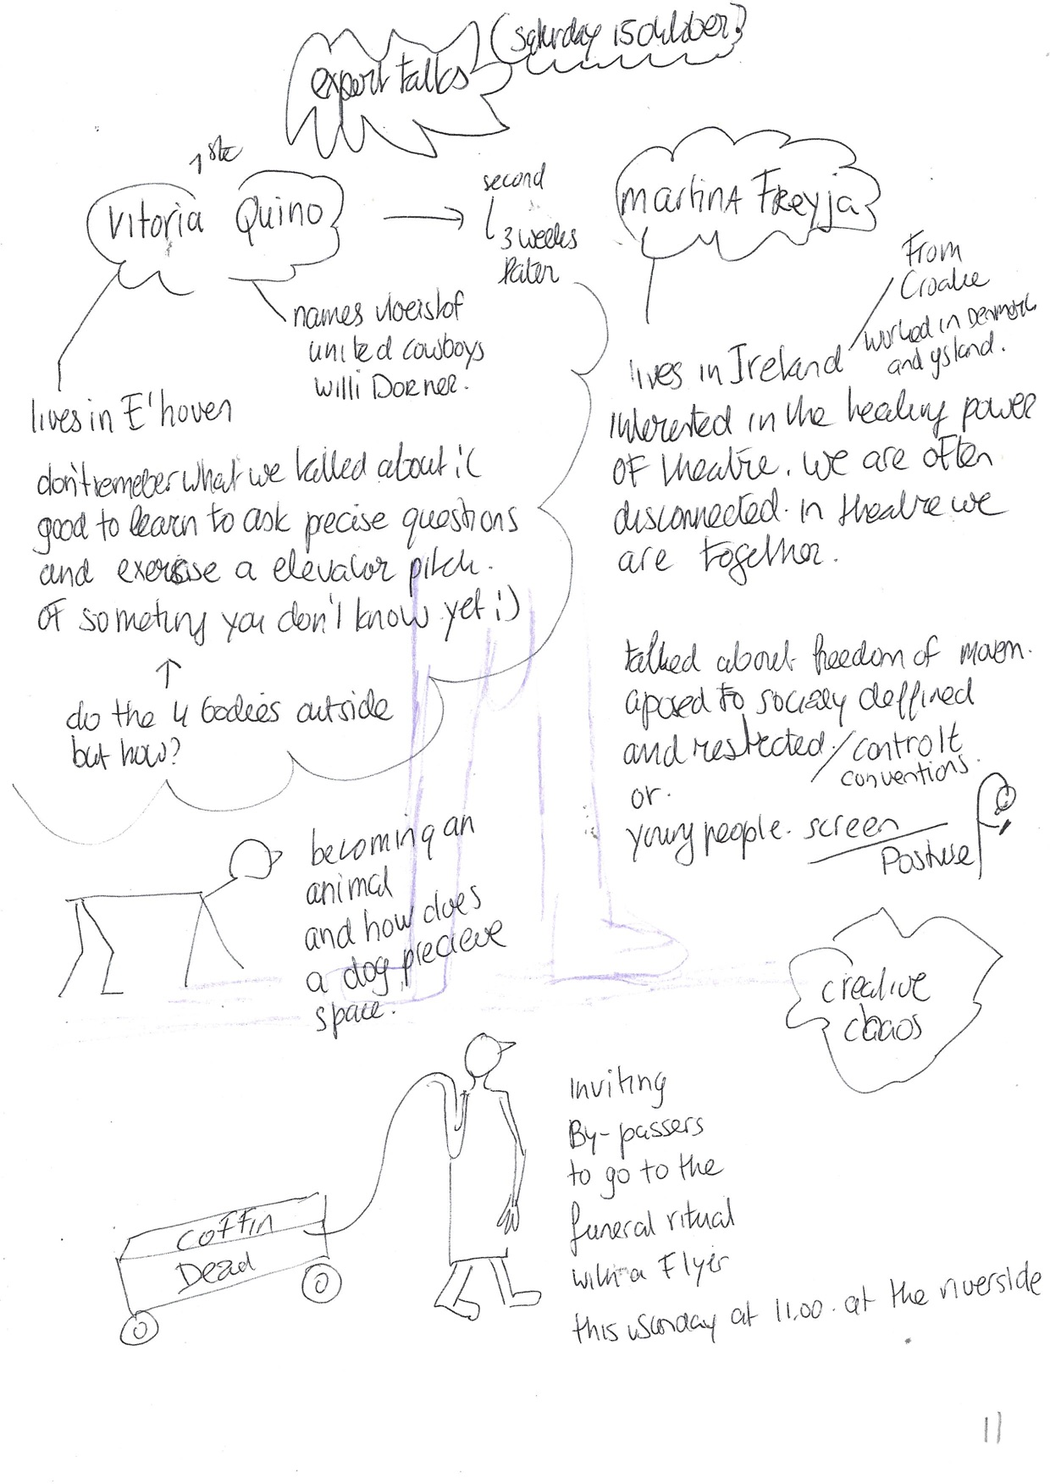 expert talks
(Saturday 15 October)
1ste
Vitoria Quino
second
3 weeks
later
names vloeistof
united cowboys
Willi Dorner.
lives in E'hoven
don't remeber what we talked about :(
good to learn to ask precise questions
and exercise a elevator pitch.
of someting you don't know yet :)
do the 4 bodies outside
but how?
becoming an
animal
and how does
a dog precieve
space.
martinA Freyja
From
Croatie
worked in Denmark
and ysland.
lives in Ireland
Interested in the healing power
of theatre. we are often
disconnected. in theatre we
are together.
talked about freedom of movem.
aposed to socialy deffined
and restricted / controlt
conventions.
or.
young people. screen
Posture
creative
chaos
Coffin
Dead
Inviting
By-passers
to go to the
funeral ritual
with a Flyer
this at 11.00. at the riverside
11